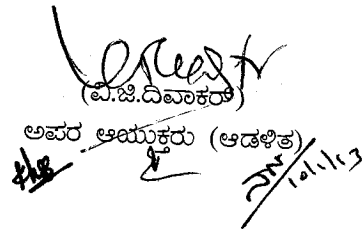 (ವಿ.ಜಿ.ದಿವಾಕರ್)
ಅಪರ ಆಯುಕ್ತರು (ಆಡಳಿತ)
10/1/13